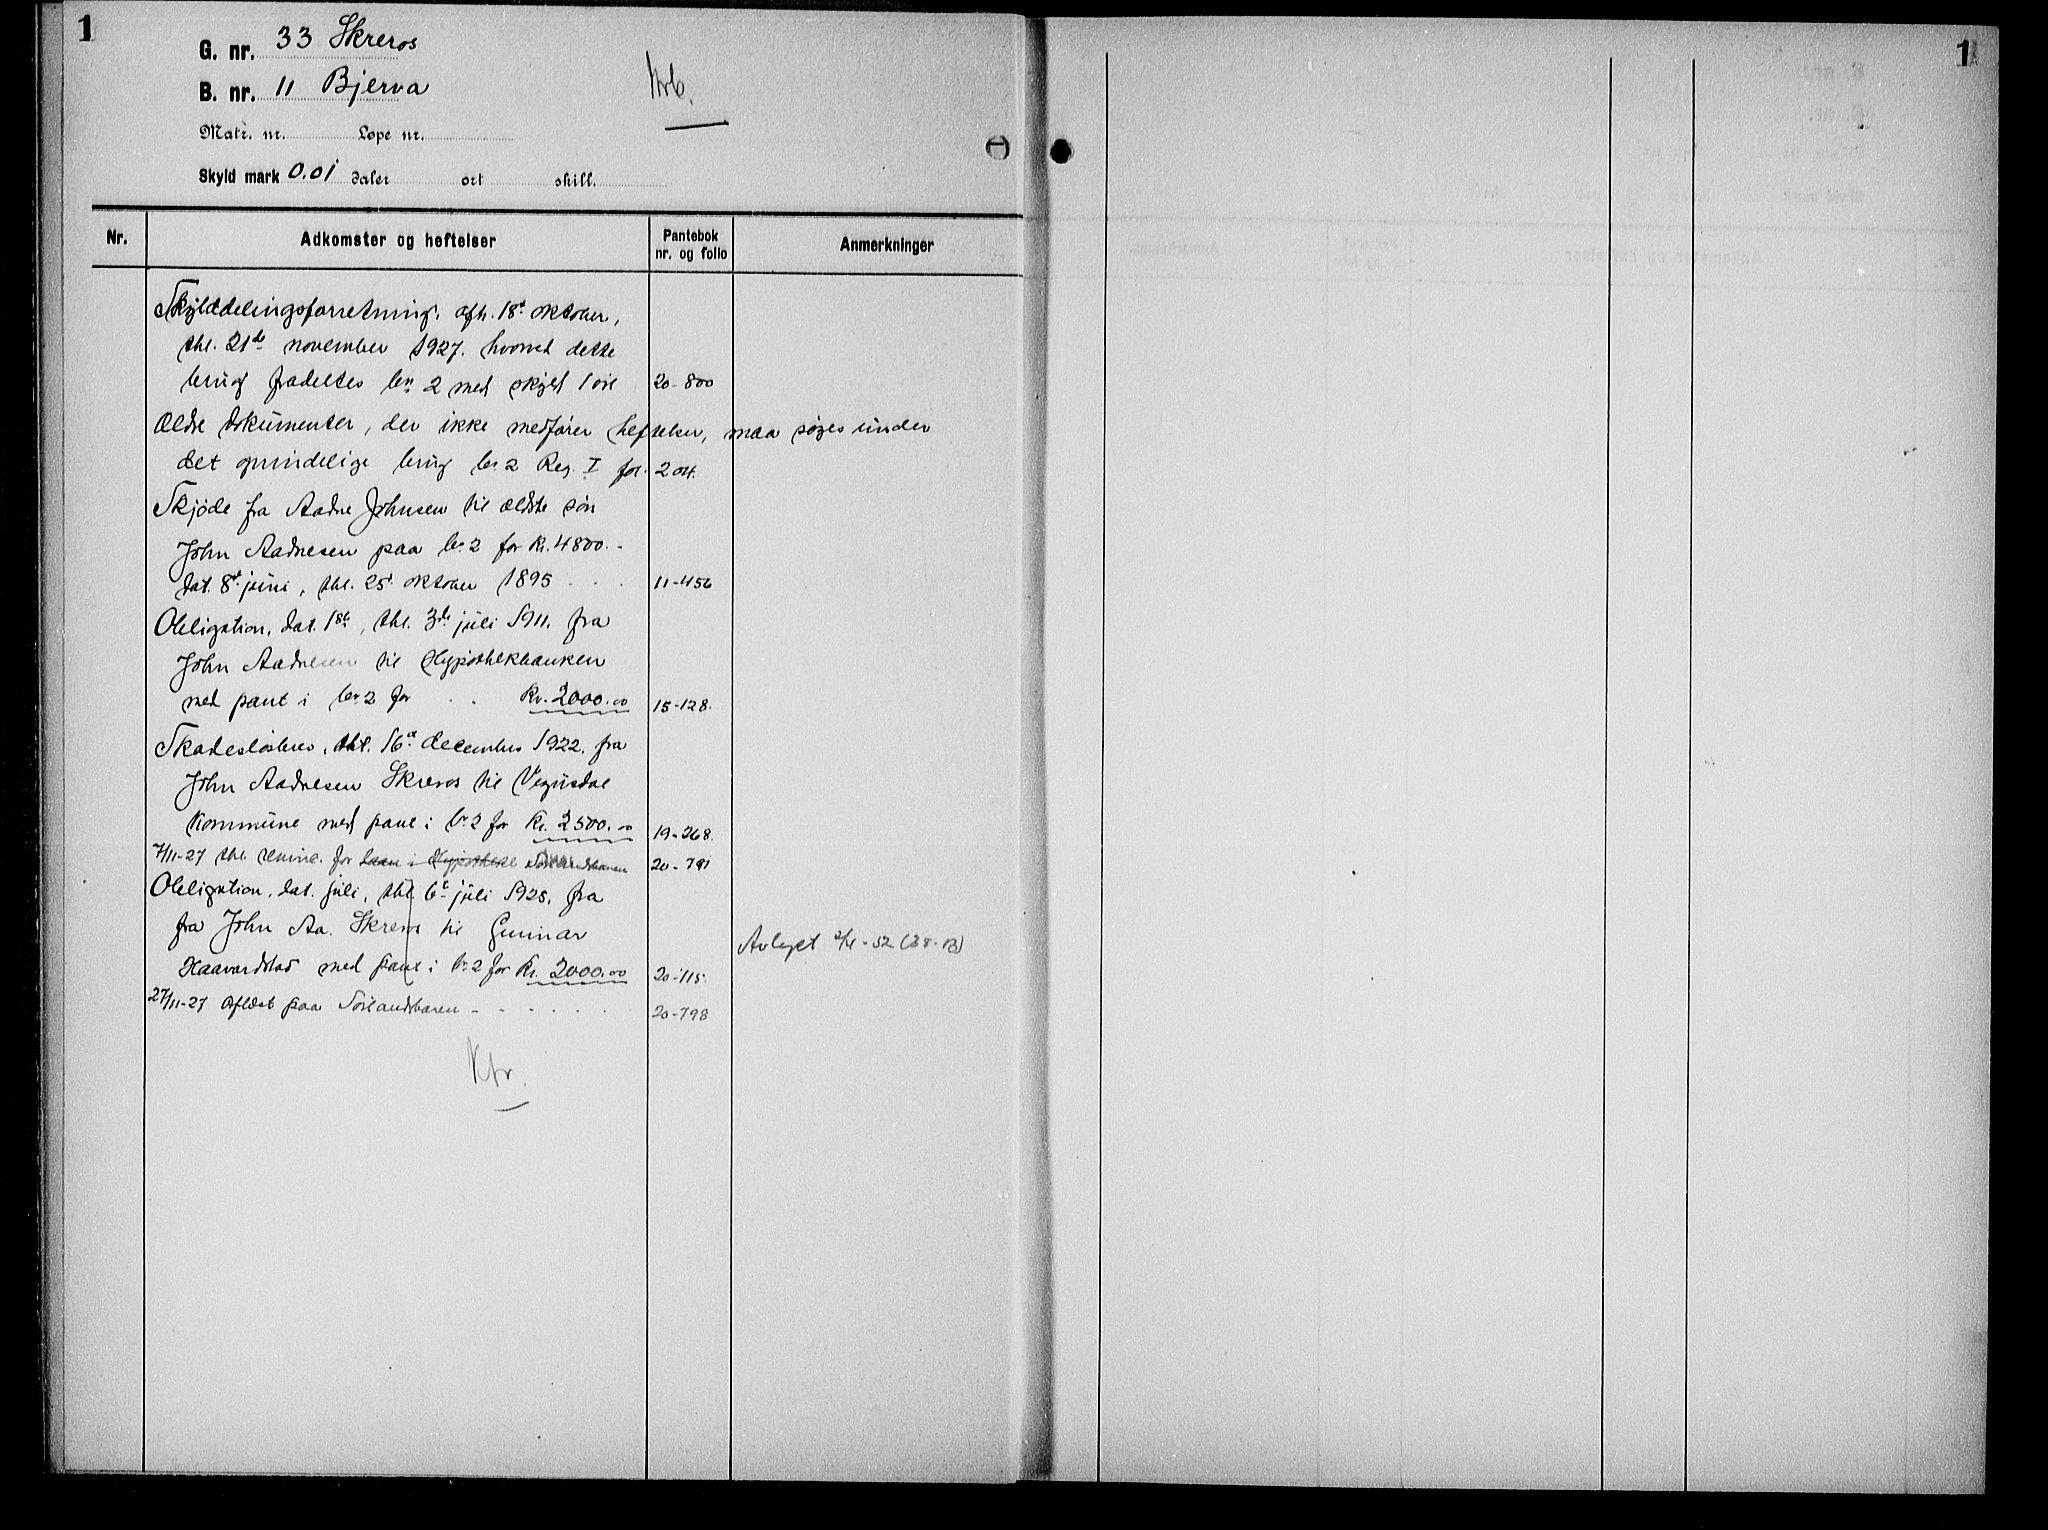 1
G. nr. 33 Skreros
B. nr. 11 Bjerva
Matr. nr. Løpe nr.
Skyld mark 0.01 daler ort skill.
Nr. Adkomster og heftelser Pantebok nr. og folio Anmerkninger
Skylddelingsforretning, afh. 18d oktober,
thl. 21de november 1927. hvorved dette
brug fradeltes br 2 med skyld 1 øre 20-800
Ældre dokumenter, der ikke medfører heftelser, maa søges under
det oprindelige brug br 2 Reg. I fol. 204.
Skjøde fra Aadne Johnsen til ældste søn
John Aadnesen paa br. 2 for Kr. 4800.-
dat. 8d juni, thl. 25d oktober 1895 11-456
Obligation, dat. 1st, thl. 3de juli 1911. fra
John Aadnesen til Hypothekbanken
med pant i br. 2 for Kr. 2000.00 15-128.
Skadesløsbrev, thl. 16d december 1922. fra
John Aadnesen Skreros til Vegusdal
Kommune med pant i br 2 for Kr. 2500.00 19-268.
7/11-27 thl. for Sørlandsbanen 20-791
Obligation, dat. juli, thl. 6d juli 1925. fra
fra John Aa. Skreros til Gunnar
Haavardstad med pant i br 2 for Kr. 2000.00 20-115.
Avlyst -52
27/11-27 Aflæst paa Sørlandsbanen 20-798
Kfr.
1